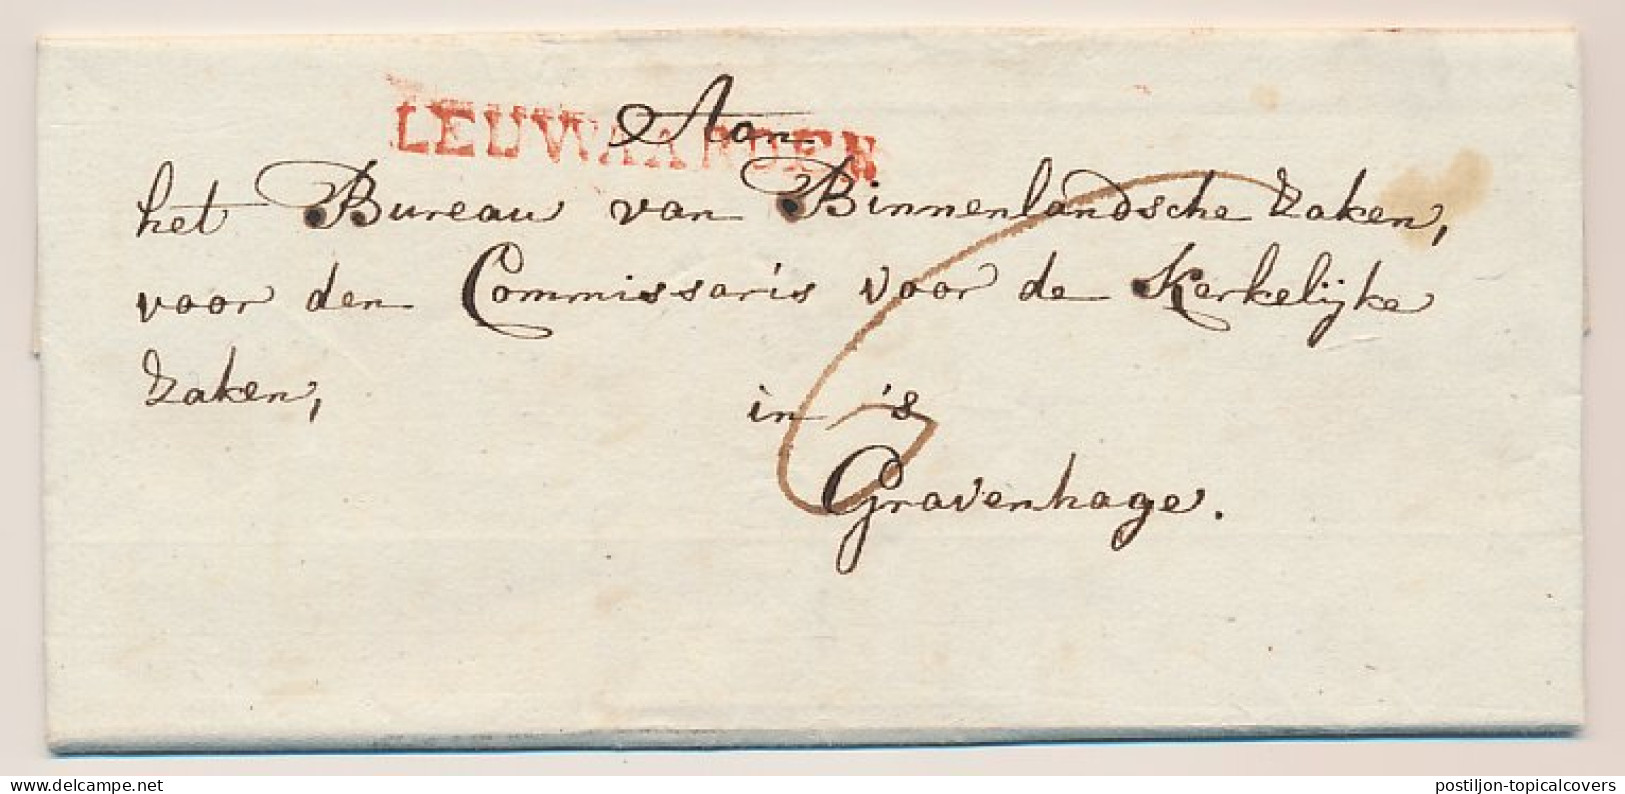 LEUWAARDEN
Aan
het Bureau van Binnenlandsche Zaken,
voor den Commissaris voor de Kerkelijke
Zaken,
in 's
Gravenhage.
6
postiljon-topicalcovers